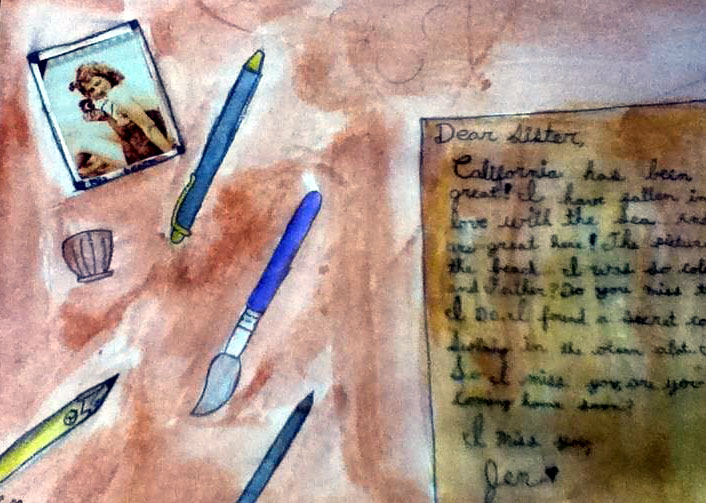 Dear Sister,
California has been
great! I have fallen in
love with the sea. And
are great here! The pictur
the beach. I was so col
and Father? Do you miss t
I Do. I found a secret co
in the ocean alot.
I miss you, are you
coming home soon?
I miss you,
Jen